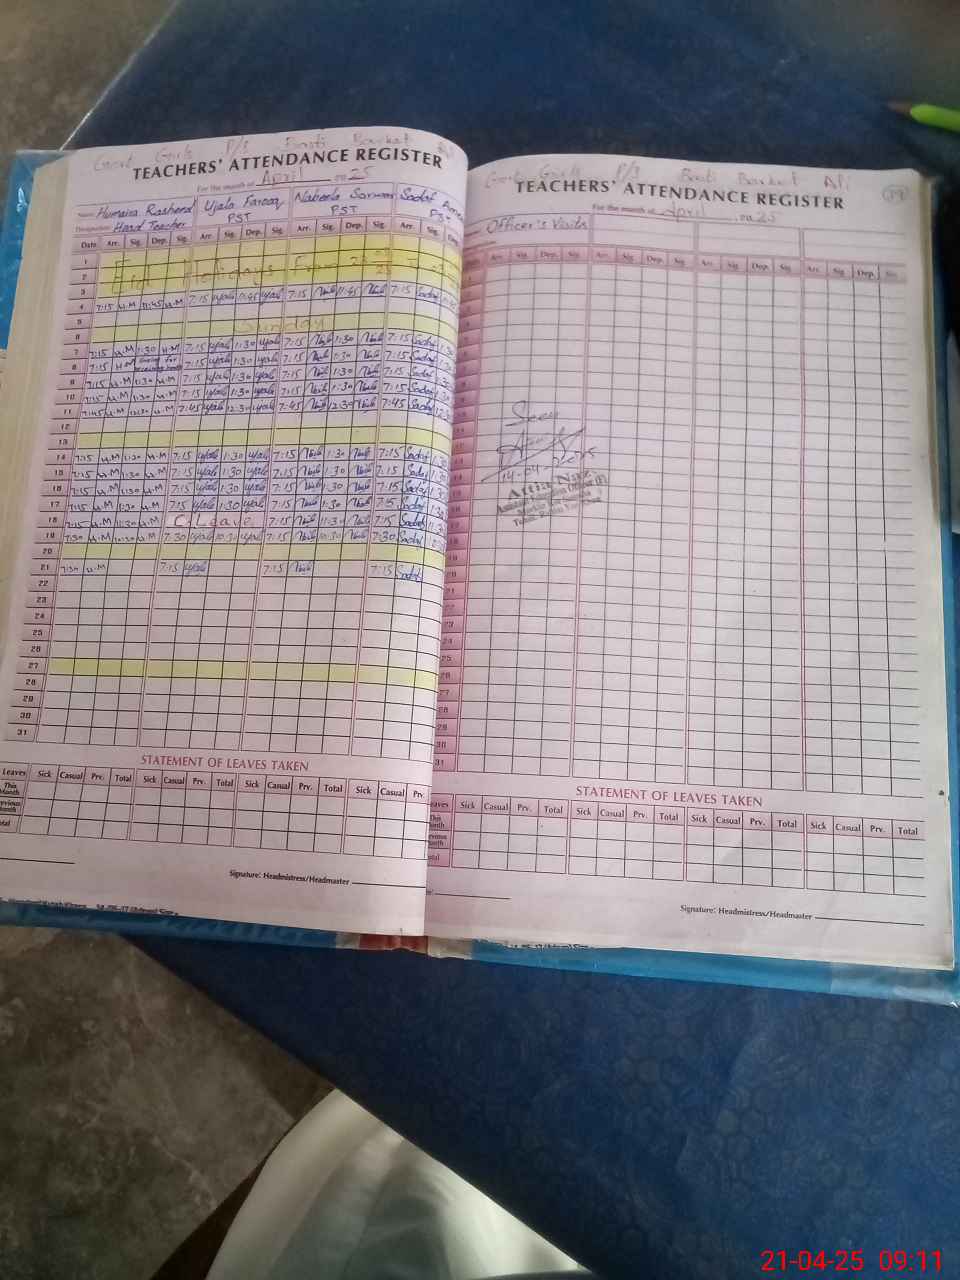 Govt Girls P/S Basti Barkat Ali
TEACHERS' ATTENDANCE REGISTER
For the month of April 2025
Name Humaira Rasheed Ujala Farooq Nabeela Sarwar Sadaf
Designation Head Teacher PST PST PST
Date Arr. Sig. Dep. Sig. Arr. Sig. Dep. Sig. Arr. Sig. Dep. Sig. Arr. Sig. Dep.
1
2 Eid Holidays From
3
4 7:15 H.M 11:45 H.M 7:15 Ujala 11:45 Ujala 7:15 Nab 11:45 Nab 7:15 Sadaf
5
6 Sunday
7 7:15 H.M 1:30 H.M 7:15 Ujala 1:30 Ujala 7:15 Nab 1:30 Nab 7:15 Sadaf
8 7:15 H.M 7:15 Ujala 1:30 Ujala 7:15 Nab 1:30 Nab 7:15 Sadaf
9 7:15 H.M 1:30 H.M 7:15 Ujala 1:30 Ujala 7:15 Nab 1:30 Nab 7:15 Sadaf
10 7:15 H.M 1:30 H.M 7:15 Ujala 1:30 Ujala 7:15 Nab 1:30 Nab 7:15 Sadaf
11 7:45 H.M 12:30 H.M 7:45 Ujala 12:30 Ujala 7:45 Nab 12:30 Nab 7:45 Sadaf
12
13
14 7:15 H.M 1:30 H.M 7:15 Ujala 1:30 Ujala 7:15 Nab 1:30 Nab 7:15 Sadaf
15 7:15 H.M 1:30 H.M 7:15 Ujala 1:30 Ujala 7:15 Nab 1:30 Nab 7:15 Sadaf
16 7:15 H.M 1:30 H.M 7:15 Ujala 1:30 Ujala 7:15 Nab 1:30 Nab 7:15 Sadaf
17 7:15 H.M 1:30 H.M 7:15 Ujala 1:30 Ujala 7:15 Nab 1:30 Nab 7:15 Sadaf
18 7:15 H.M H.M C. Leave 7:15 Nab Nab 7:15 Sadaf
19 7:30 H.M 10:30 H.M 7:30 Ujala 10:30 Ujala 7:15 Nab 10:30 Nab 7:30 Sadaf
20
21 7:30 H.M 7:15 Ujala 7:15 Nab 7:15 Sadaf
22
23
24
25
26
27
28
29
30
31
STATEMENT OF LEAVES TAKEN
Leaves Sick Casual Prv. Total Sick Casual Prv. Total Sick Casual Prv. Total Sick Casual
This Month
Previous Month
Total
Signature: Headmistress/Headmaster
Govt Girls P/S Basti Barkat Ali
TEACHERS' ATTENDANCE REGISTER
For the month of April 2025
Officer's Visits
Arr. Sig. Dep. Sig. Arr. Sig. Dep. Sig. Arr. Sig. Dep. Sig. Arr. Sig. Dep. Sig.
Seen
14-04-2025
Attia Naz
STATEMENT OF LEAVES TAKEN
Leaves Sick Casual Prv. Total Sick Casual Prv. Total Sick Casual Prv. Total Sick Casual Prv. Total
This Month
Previous Month
Total
Signature: Headmistress/Headmaster
21-04-25 09:11